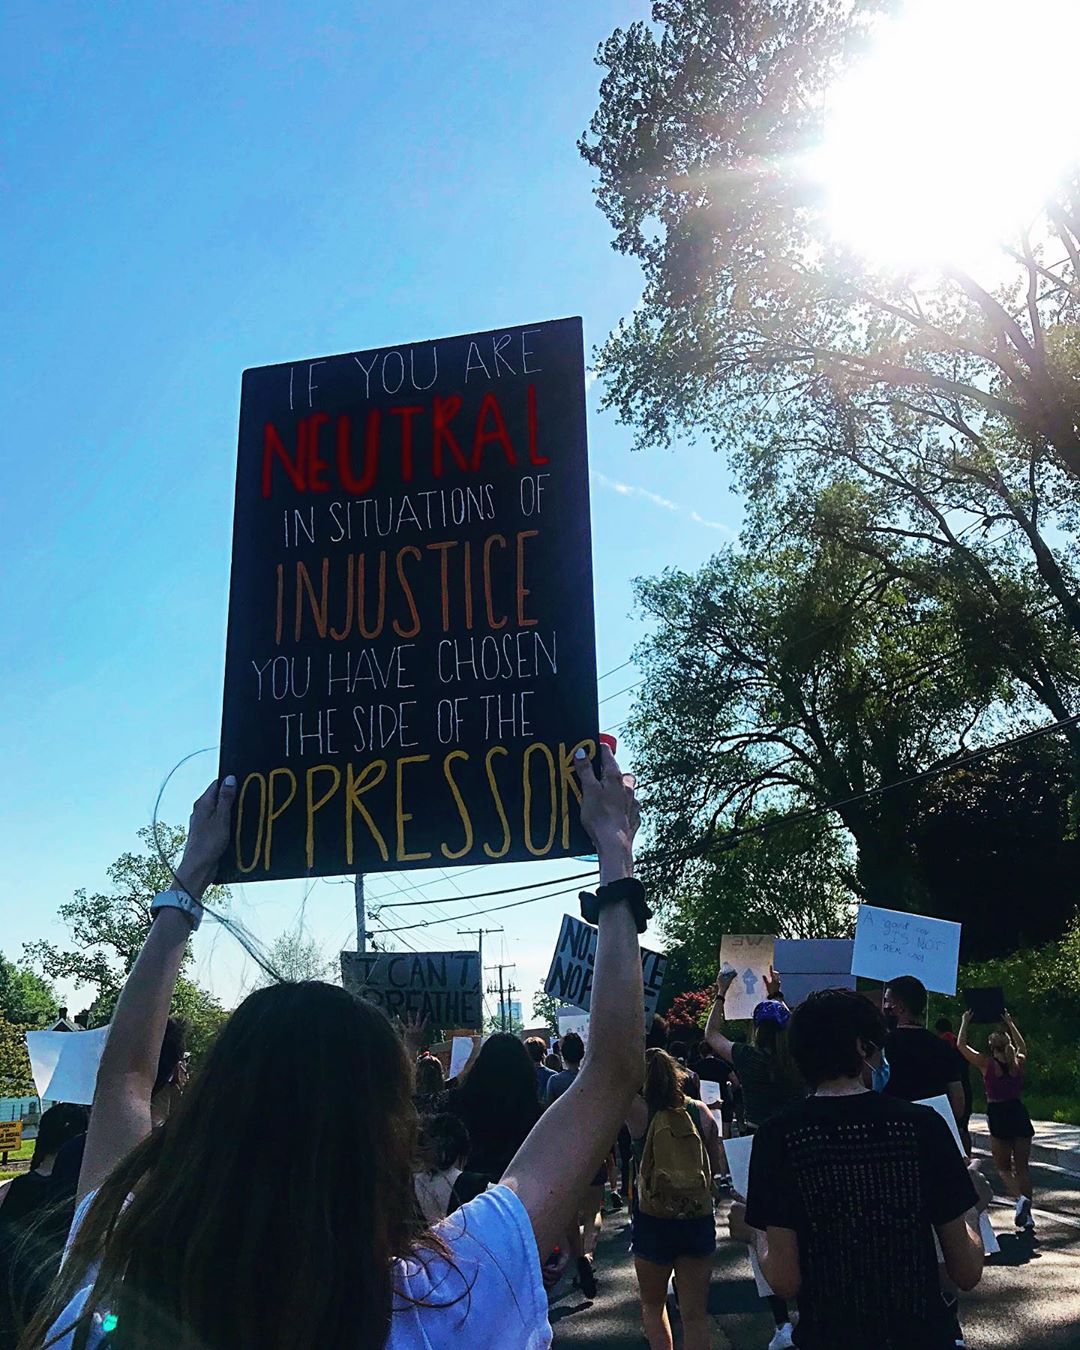 IF YOU ARE
NEUTRAL
IN SITUATIONS OF
INJUSTICE
YOU HAVE CHOSEN
THE SIDE OF THE
OPPRESSOR
I CAN'T
BREATHE
NO
NO
WE
A good cop
IS NOT